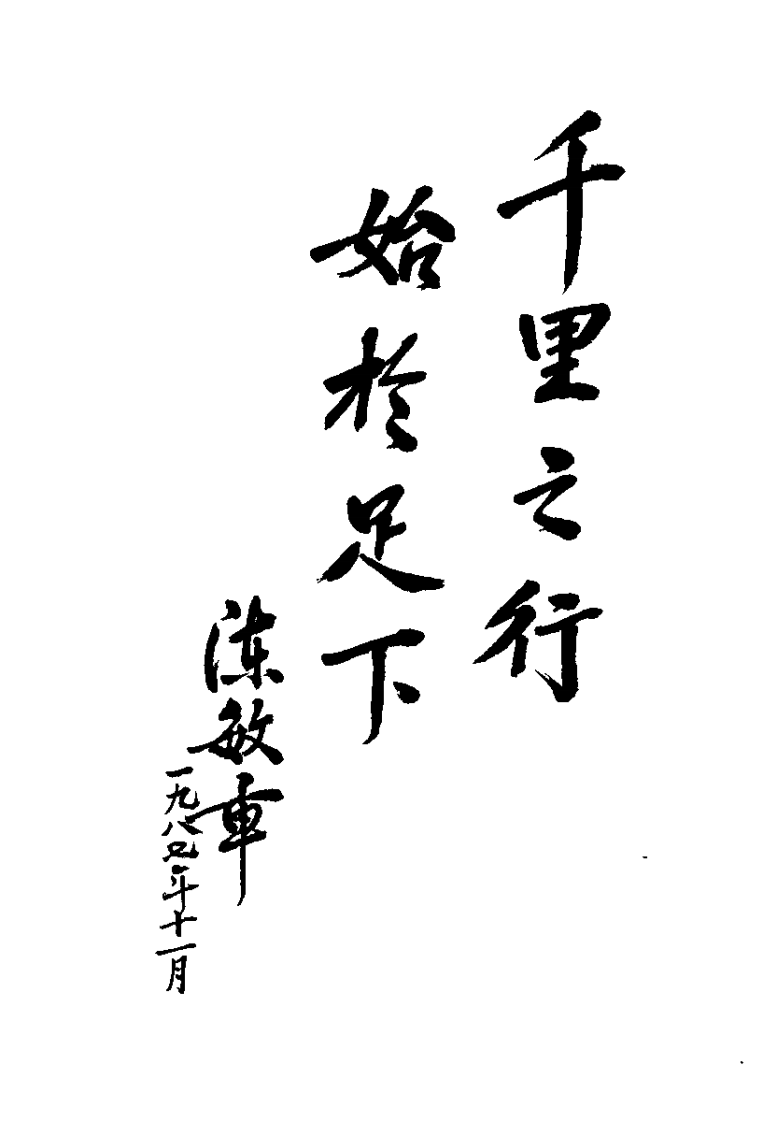 千里之行
始於足下
陈敏章
一九八 年十一月